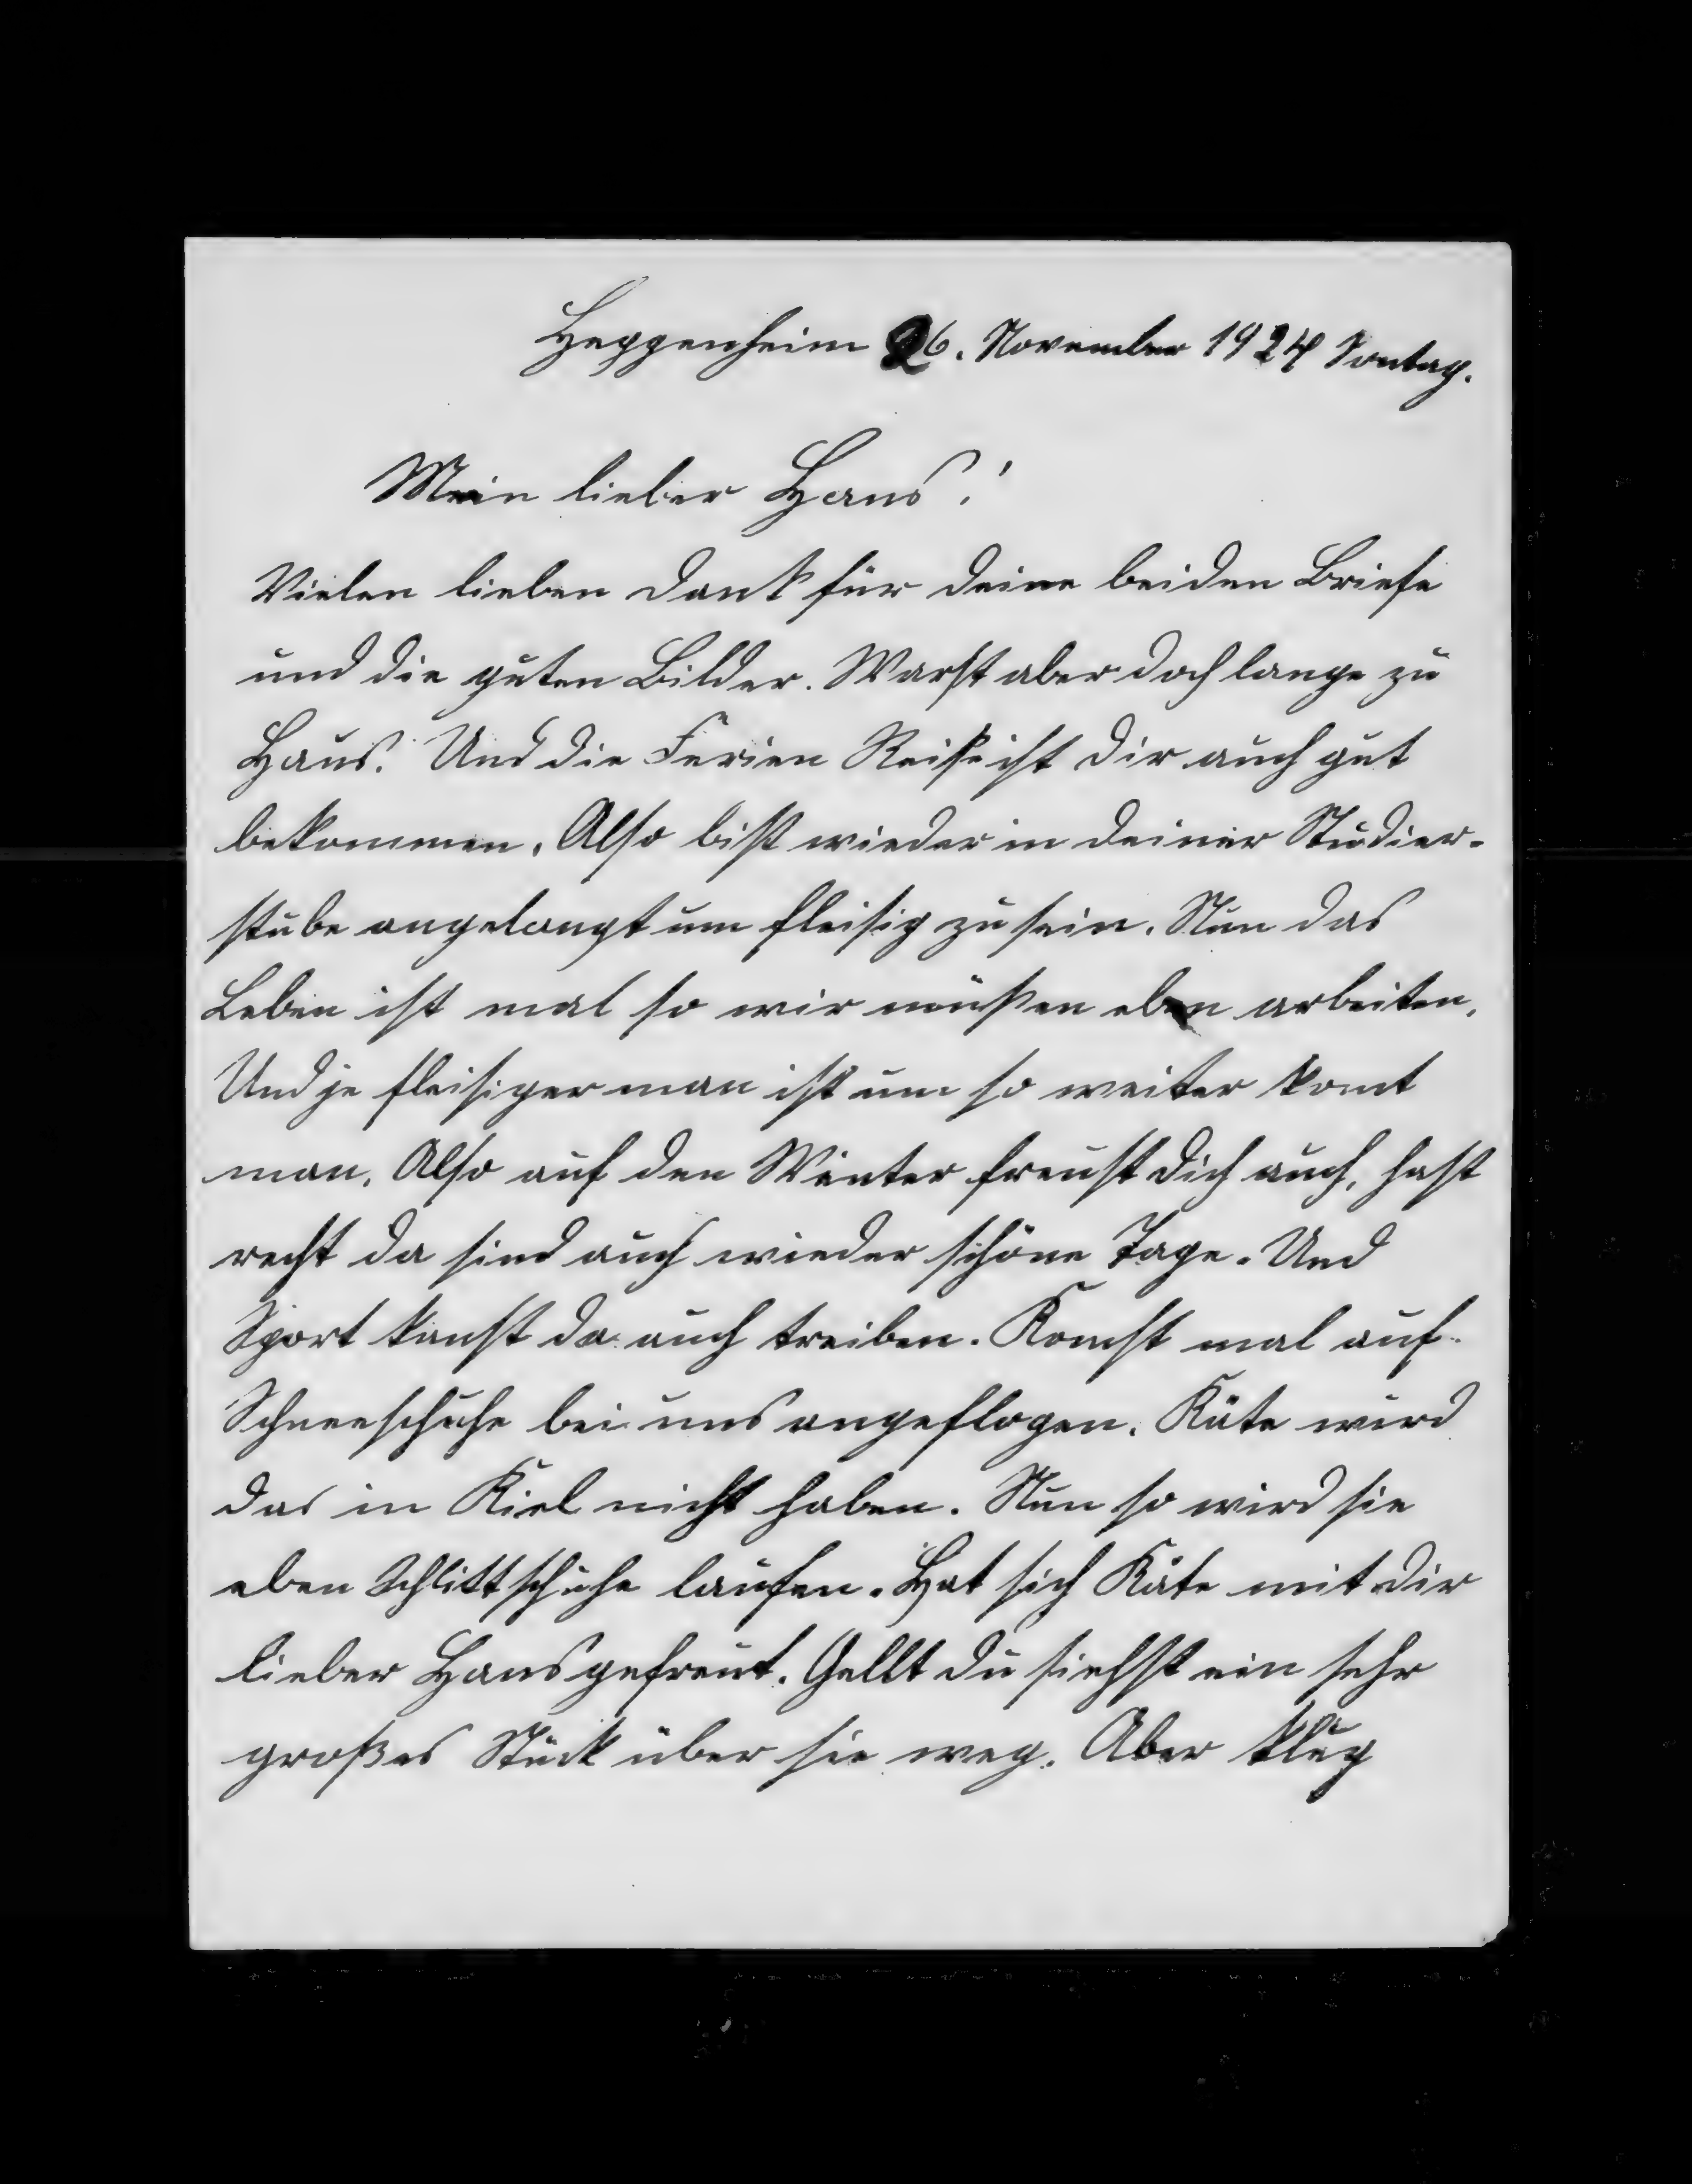 Heppenheim 26. November 1924 Sontag.
Mein lieber Hans!
Vielen lieben Dank für deine beiden Briefe
und die guten Bilder. Warst aber doch lange zu
Haus. Und die Ferien Reise ist dir auch gut
bekommen. Also bist wieder in deiner Studier-
stube angelangt um fleisig zu sein. Nun das
Leben ist mal so wir müßen eben arbeiten.
Und je fleisiger man ist um so weiter komt
man. Also auf den Winter freust dich auch, hast
recht da sind auch wieder schöne Tage. Und
Sport kanst da auch treiben. Komst mal auf
Schneeschuhe bei uns angeflogen. Käte wird
das in Kiel nicht haben. Nun so wird sie
eben Schlittschuhe laufen. Hat sich Käte mit dir
lieber Hans gefreut. Gellt du siehst ein sehr
großes Stück über sie weg. Aber klug